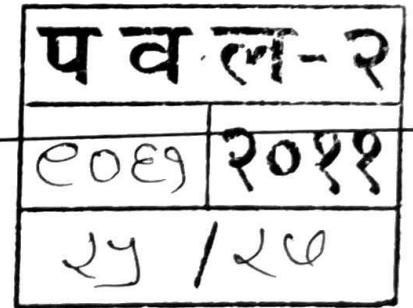 प व ल - २
९०६१ २०११
२५ / २७